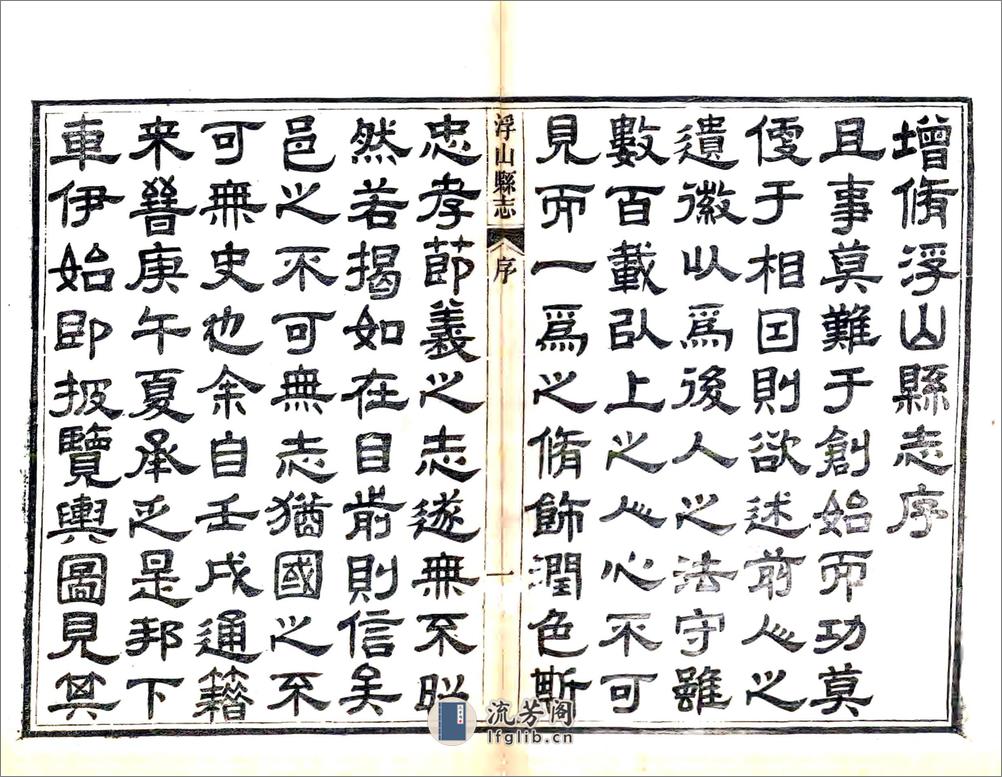 增脩浮山縣志序
且事莫難于創始而功莫
便于相因則欲述前人之
遺徽以爲後人之法守雖
數百載以上之人心不可
見而一爲之脩飾潤色斯
浮山縣志 序 一
忠孝節義之志遂無不昭
然若揭如在目前則信矣
邑之不可無志猶國之不
可無史也余自壬戌通籍
来晉庚午夏承乏是邦下
車伊始即披覽輿圖見其
流芳阁
lfglib.cn